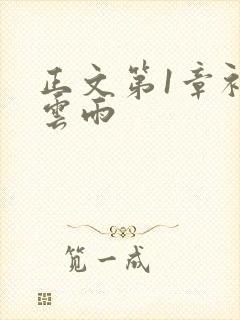 正文第1章初
雲雨
笕一成